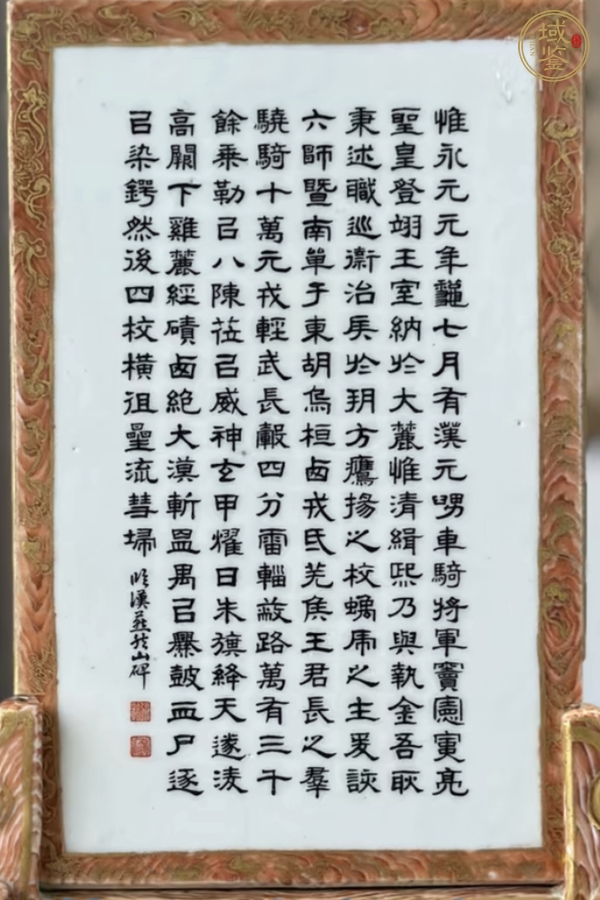 惟永元元年龝七月有漢元舅車騎將軍竇憲寅亮
聖皇登翊王室納於大麓惟清緝熙乃與執金吾耿
秉述職巡衛治兵於朔方鷹揚之校螭虎之主爰該
六師暨南單于東胡烏桓西戎氐羌侯王君長之羣
驍騎十萬元戎輕武長轂四分雷輜蔽路萬有三千
餘乘勒㠯八陳莅㠯威神玄甲耀日朱旗絳天遂淩
高闕下雞麓經磧鹵絕大漠斬盟禺㠯釁鼓血尸逐
㠯染鍔然後四校橫徂星流彗埽
臨漢燕然山碑
域鉴